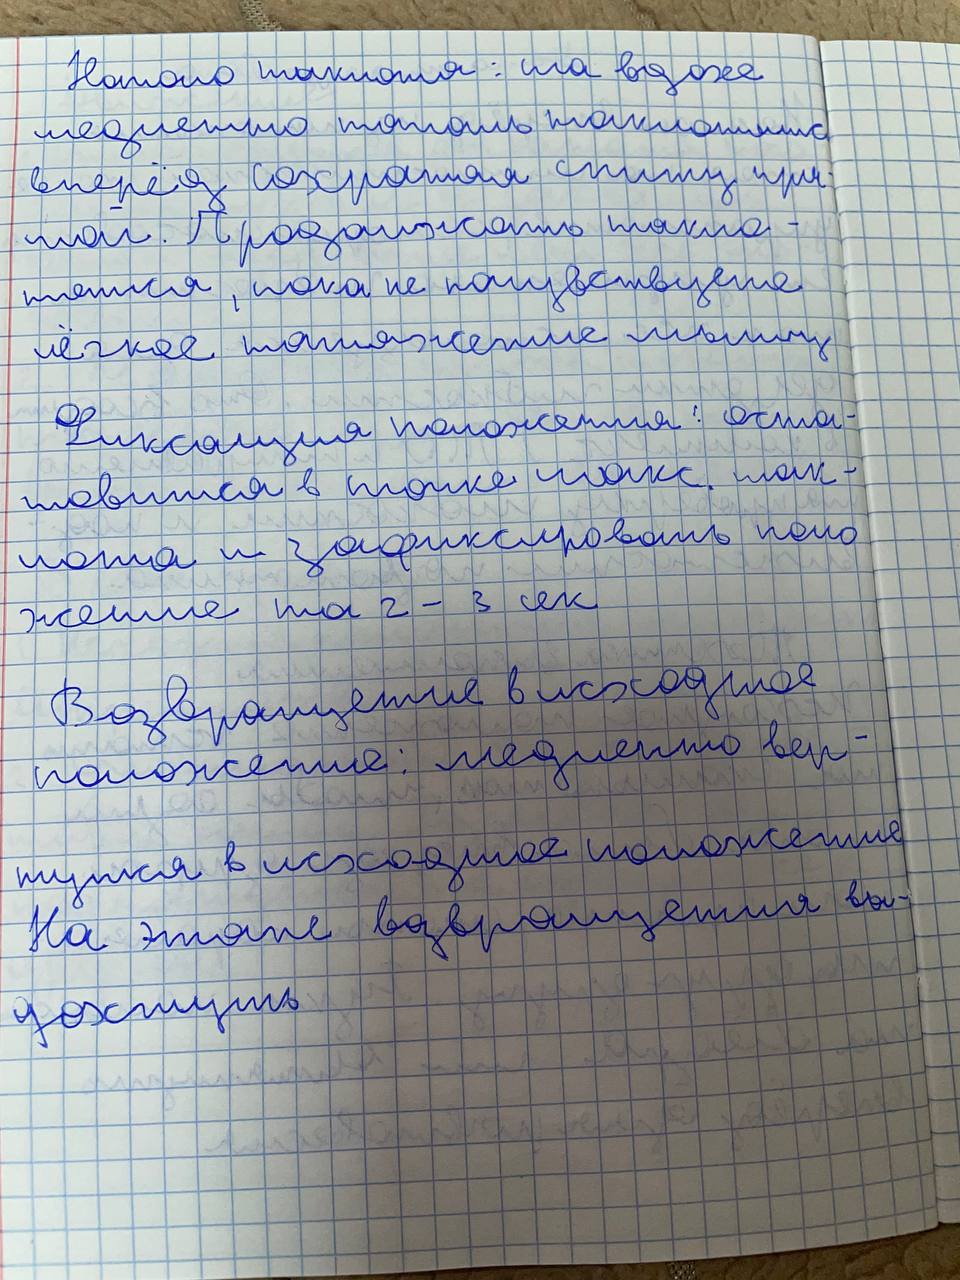 Начало наклона: на вдохе
медленно начать наклонятся
вперёд сохраняя спину пря-
мой. Продолжать накло-
нятся, пока не почувствуете
лёгкое натяжение мышц
Фиксация положения: оста-
новится в точке макс. нак-
лона и зафиксировать поло
жение на 2-3 сек
Возвращение в исходное
положение: медленно вер-
нутся в исходное положение
На этапе возвращения вы-
дохнуть